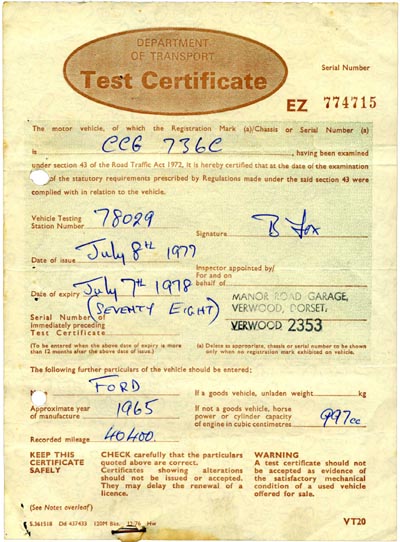 DEPARTMENT
OF TRANSPORT
Test Certificate
Serial Number
EZ 774715
The motor vehicle, of which the Registration Mark (a)/Chassis or Serial Number (a)
is CCG 736C, having been examined
under section 43 of the Road Traffic Act 1972, it is hereby certified that at the date of the examination
of the statutory requirements prescribed by Regulations made under the said section 43 were
complied with in relation to the vehicle.
Vehicle Testing
Station Number 78029
Signature B Fox
Date of issue July 8th 1977
Inspector appointed by/
For and on
behalf of
Date of expiry July 7th 1978
(SEVENTY EIGHT)
MANOR ROAD GARAGE,
VERWOOD, DORSET,
VERWOOD 2353
Serial Number of
immediately preceding
Test Certificate
(To be entered when the above date of expiry is more
than 12 months after the above date of issue.)
(a) Delete as appropriate, chassis or serial number to be shown
only when no registration mark exhibited on vehicle.
The following further particulars of the vehicle should be entered:
FORD
If a goods vehicle, unladen weight kg
Approximate year
of manufacture 1965
If not a goods vehicle, horse
power or cylinder capacity
of engine in cubic centimetres 997cc
Recorded mileage 40400.
KEEP THIS
CERTIFICATE
SAFELY
CHECK carefully that the particulars
quoted above are correct.
Certificates showing alterations
should not be issued or accepted.
They may delay the renewal of a
licence.
WARNING
A test certificate should not
be accepted as evidence of
the satisfactory mechanical
condition of a used vehicle
offered for sale.
(See Notes overleaf)
S.361518 Dd 457433 120M Bks. 12/76 Hw
VT20